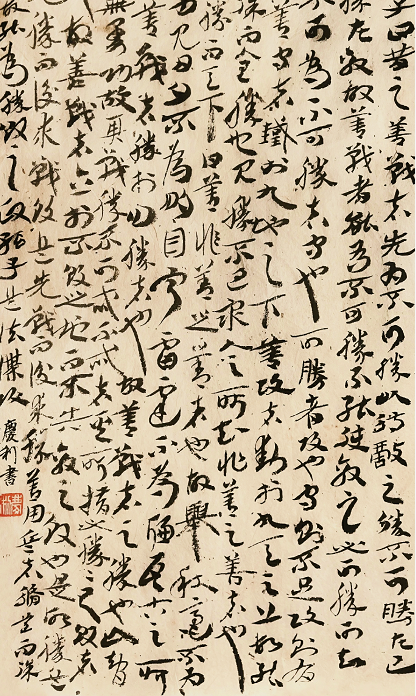 子曰昔之善戰者先為不可勝以待敵之勝不可勝在己
勝在敵故善戰者能為不可勝不能使敵之必可勝可知
而不可為不可勝者守也可勝者攻也守則不足攻則有
善守者藏於九地之下善攻者動於九天之上故能
保而全勝也見勝不過眾人之所知非善之善者也
勝而天下曰善非善之善者也故舉秋毫不為
力見日月不為明目聞雷霆不為聰耳古之所
善戰者勝於易勝者也故善戰者之勝也無智
無勇功故其戰勝不忒不忒者其所措必勝勝敗者
故善戰者立於不敗之地而不失敵之敗也是故勝兵
勝而後求戰敗兵先戰而後求勝善用兵者脩道而保
故能為勝敗之政孫子兵法謀攻
慶利書